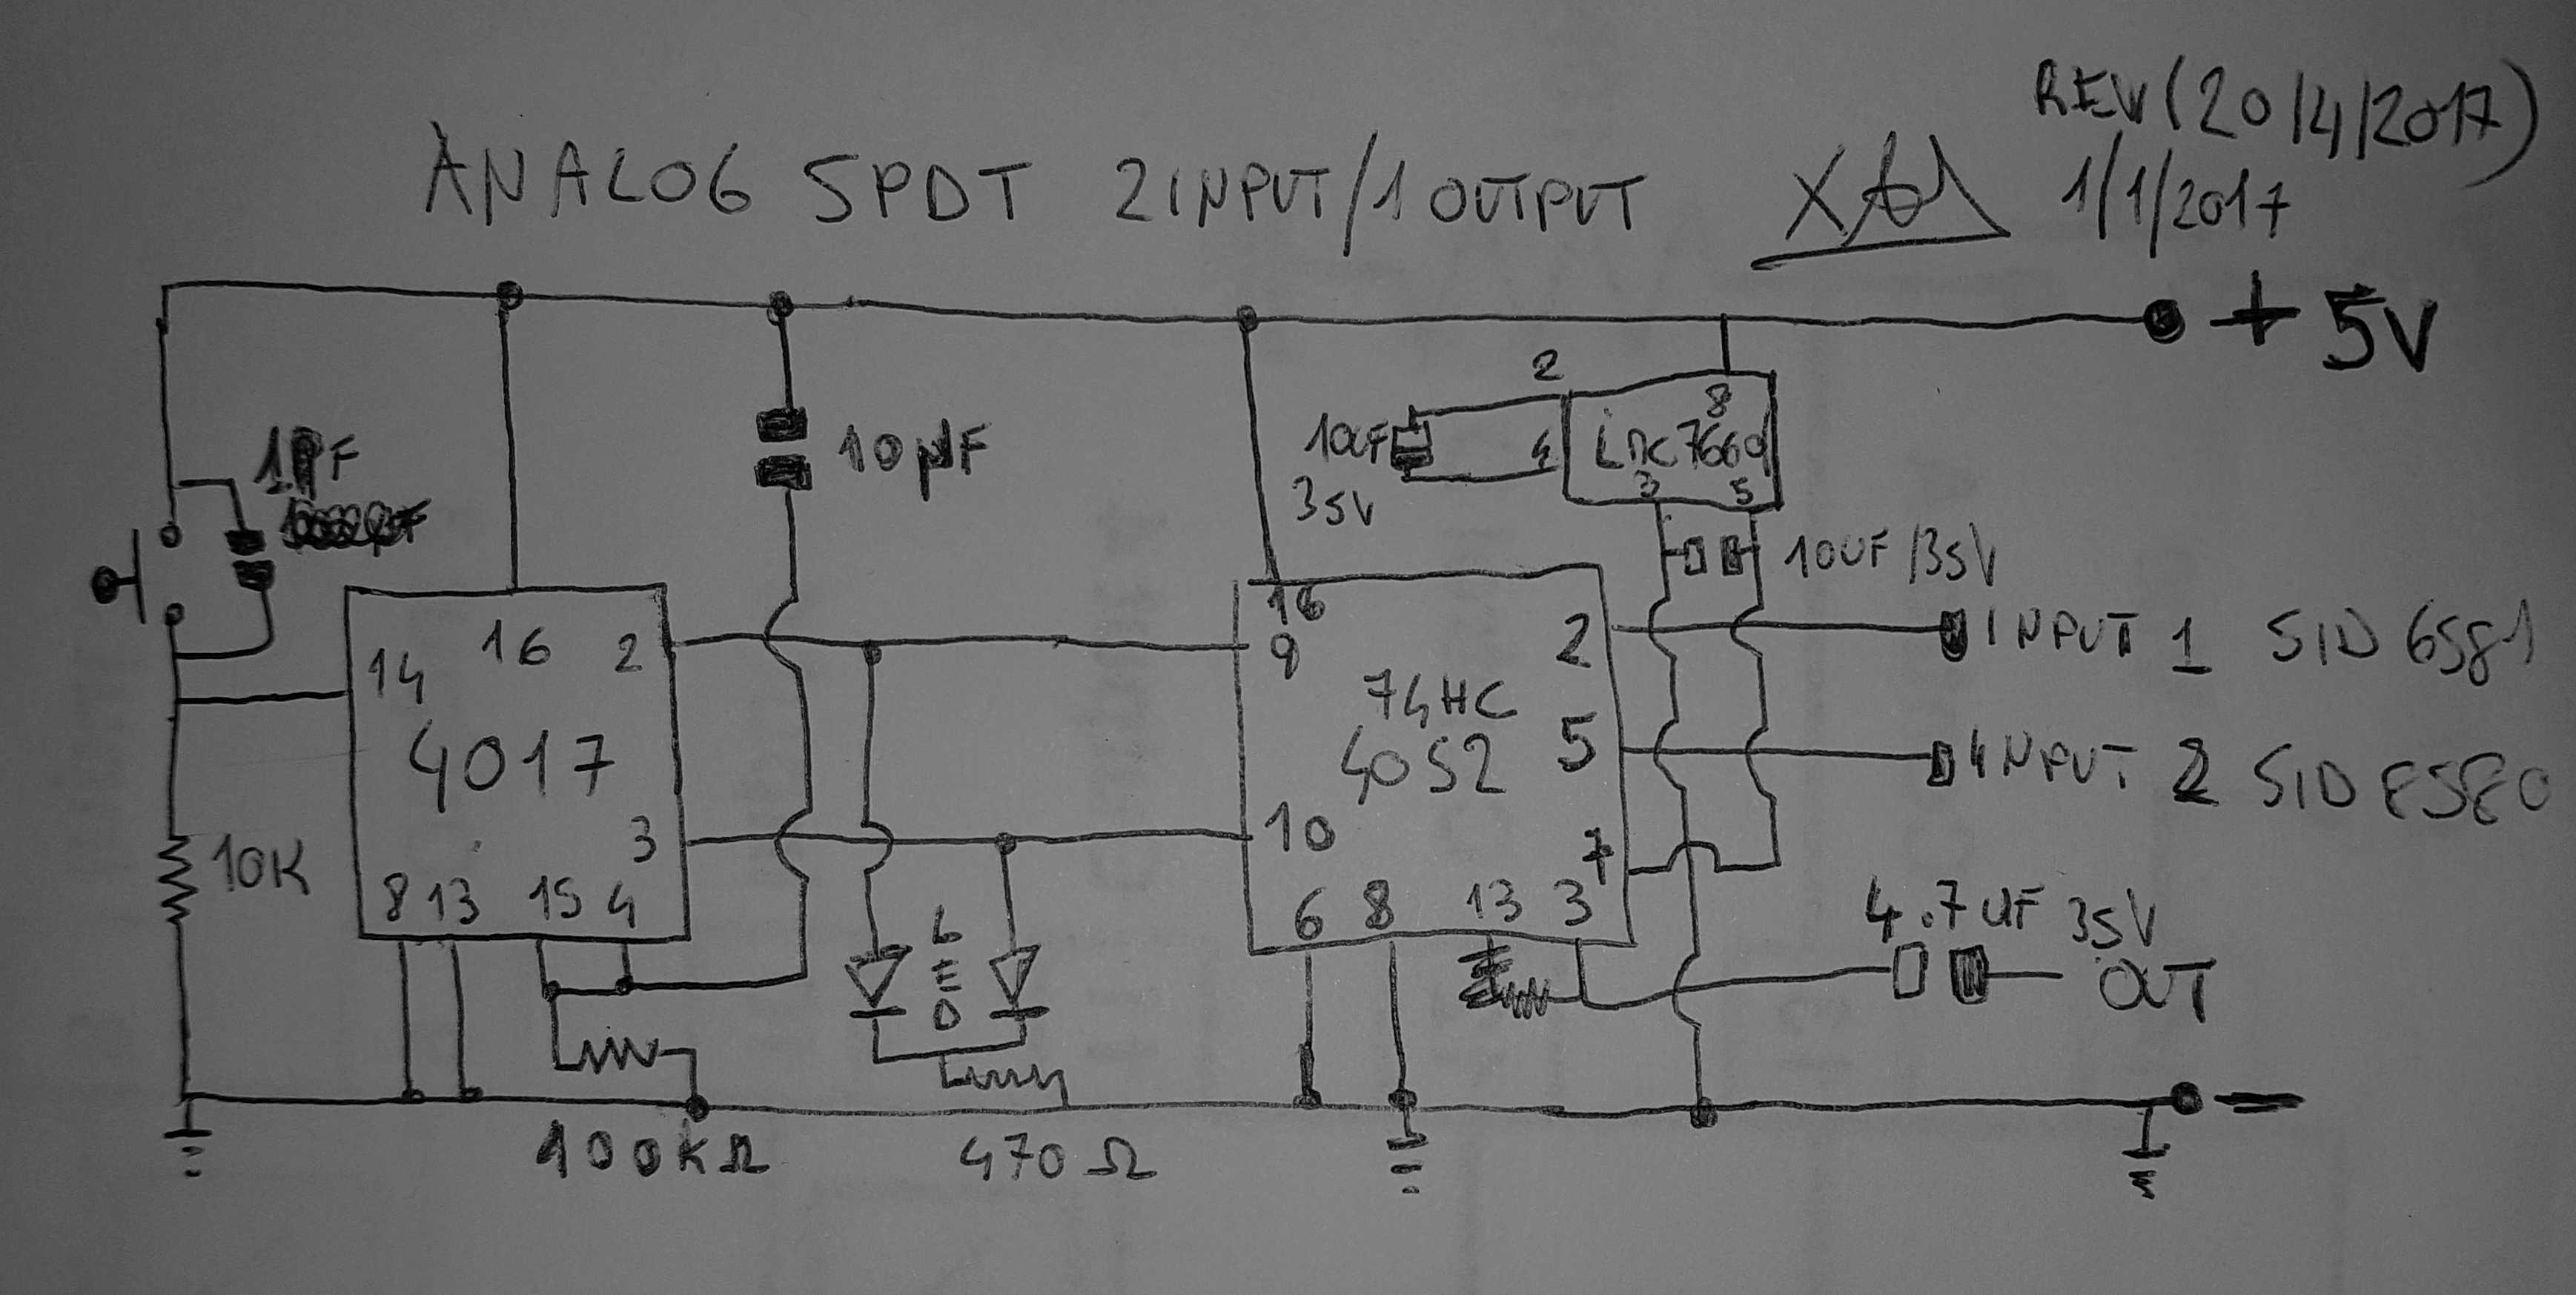 REV (20/4/2017)
ANALOG SPDT 2 INPUT/1 OUTPUT
1/1/2017
+ 5V
2
8
10UF
4
LMC7660
35V
3 5
10µF
10UF/35V
16
14 16 2
4017
3
8 13 15 4
10K
9
2
INPUT 1 SID 6581
74HC
4052
5
INPUT 2 SID 8580
10
7
6 8 13 3
LED
4.7UF 35V
OUT
-
100KΩ
470Ω